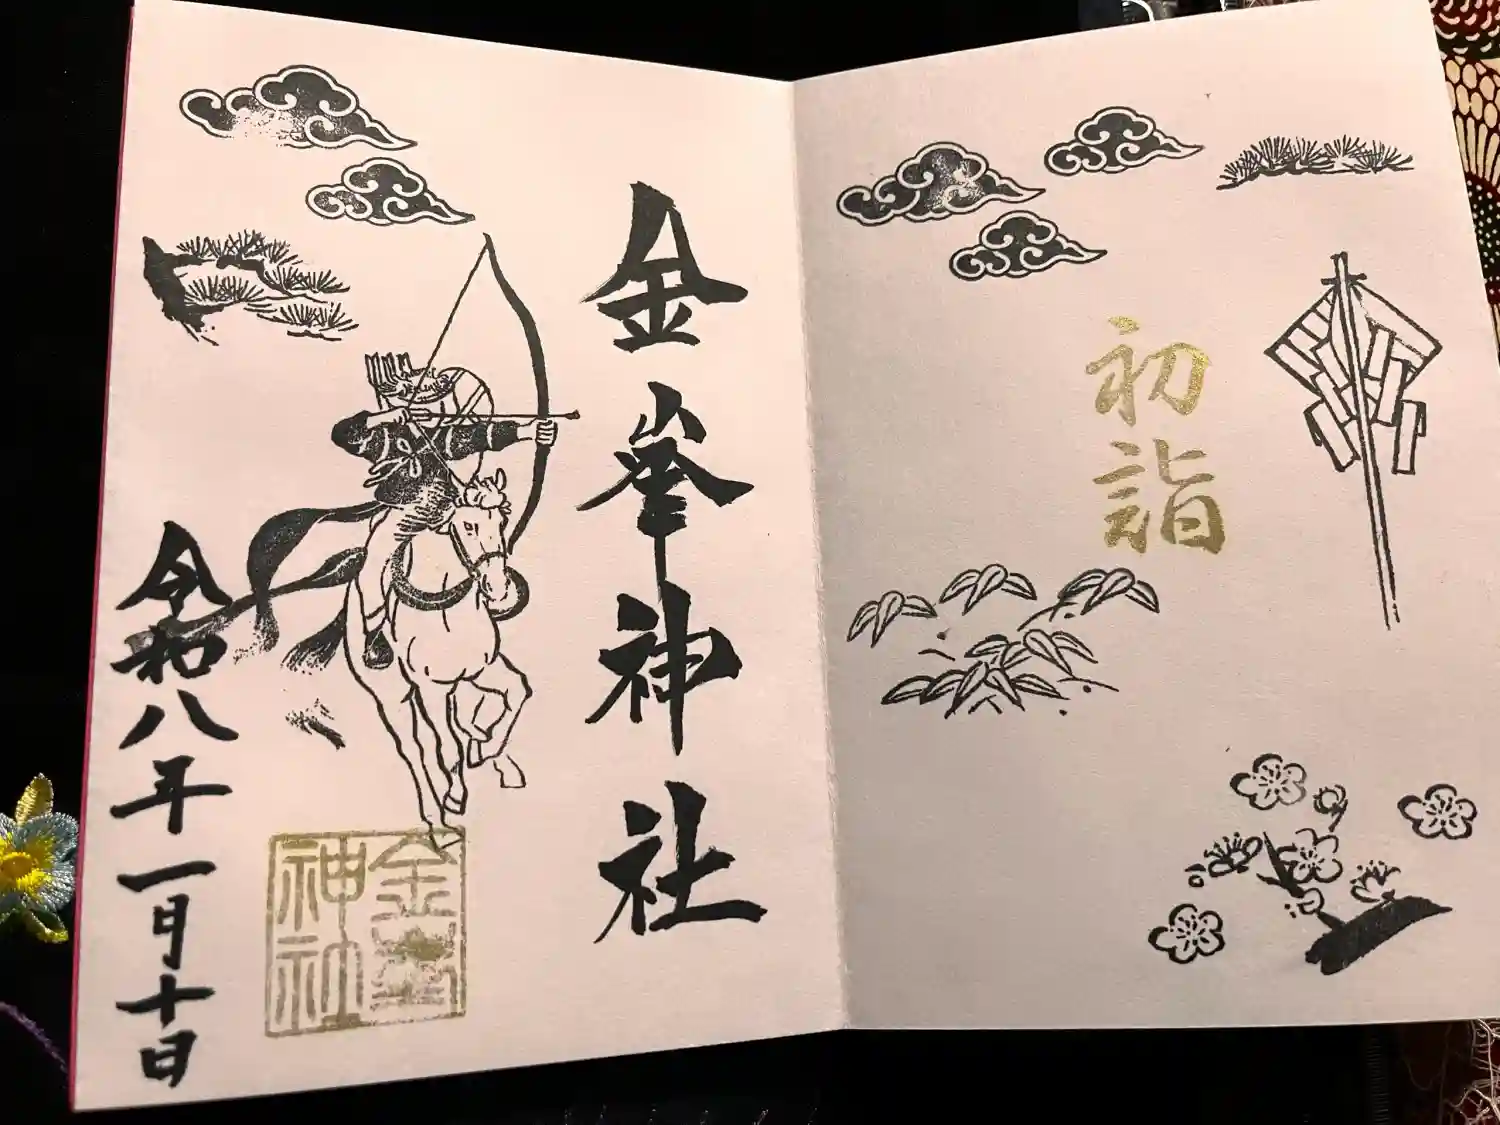 初詣
金峯神社
令和八年一月十日
金峯神社